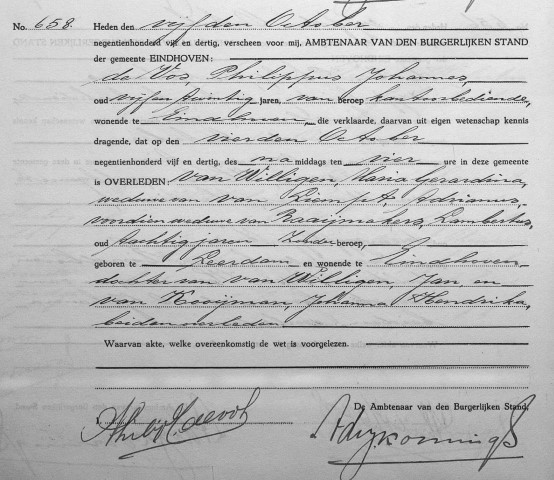 No. 658. Heden den vijfden October
negentienhonderd vijf en dertig, verscheen voor mij, AMBTENAAR VAN DEN BURGERLIJKEN STAND
der gemeente EINDHOVEN:
de Vos, Philippus Johannes,
oud vijf en twintig jaren, van beroep kantoorbediende,
wonende te Eindhoven, die verklaarde, daarvan uit eigen wetenschap kennis
dragende, dat op den vierden October
negentienhonderd vijf en dertig, des na middags ten vier ure in deze gemeente
is OVERLEDEN: van Willigen, Maria Gerardina,
weduwe van van Kiempt, Adrianus,
voordien weduwe van Raaijmakers, Lambertus,
oud tachtig jaren Zonder beroep,
geboren te Leerdam en wonende te Eindhoven
dochter van van Willigen, Jan, en
van Kooijman, Johanna Hendrika,
beiden overleden
Waarvan akte, welke overeenkomstig de wet is voorgelezen.
De Ambtenaar van den Burgerlijken Stand,